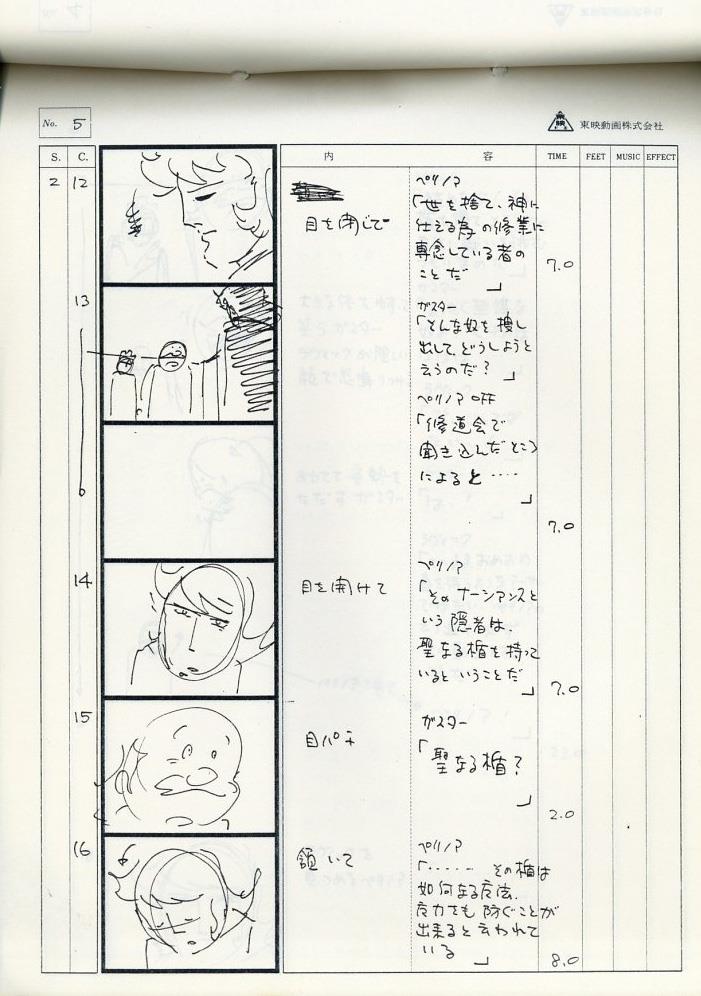 No. 5
東映
東映動画株式会社
S. C. 内 容 TIME FEET MUSIC EFFECT
2 12
目を閉じて
ペリノア
「世を捨て、神に
仕える為の修業に
専念している者の
ことだ
」
7.0
13
ガスター
「そんな奴を捜し
出して、どうしようと
云うのだ?
」
ペリノア OFF
「修道会で
聞き込んだところ
によると・・・・
」
7.0
14
目を開けて
ペリノア
「そのナーシアンスと
いう隠者は、
聖なる楯を持って
いるということだ
」
7.0
15
目パチ
ガスター
「聖なる楯?
」
2.0
16
頷いて
ペリノア
「・・・・・その楯は
如何なる
も防ぐことが
出来ると云われて
いる
」
8.0